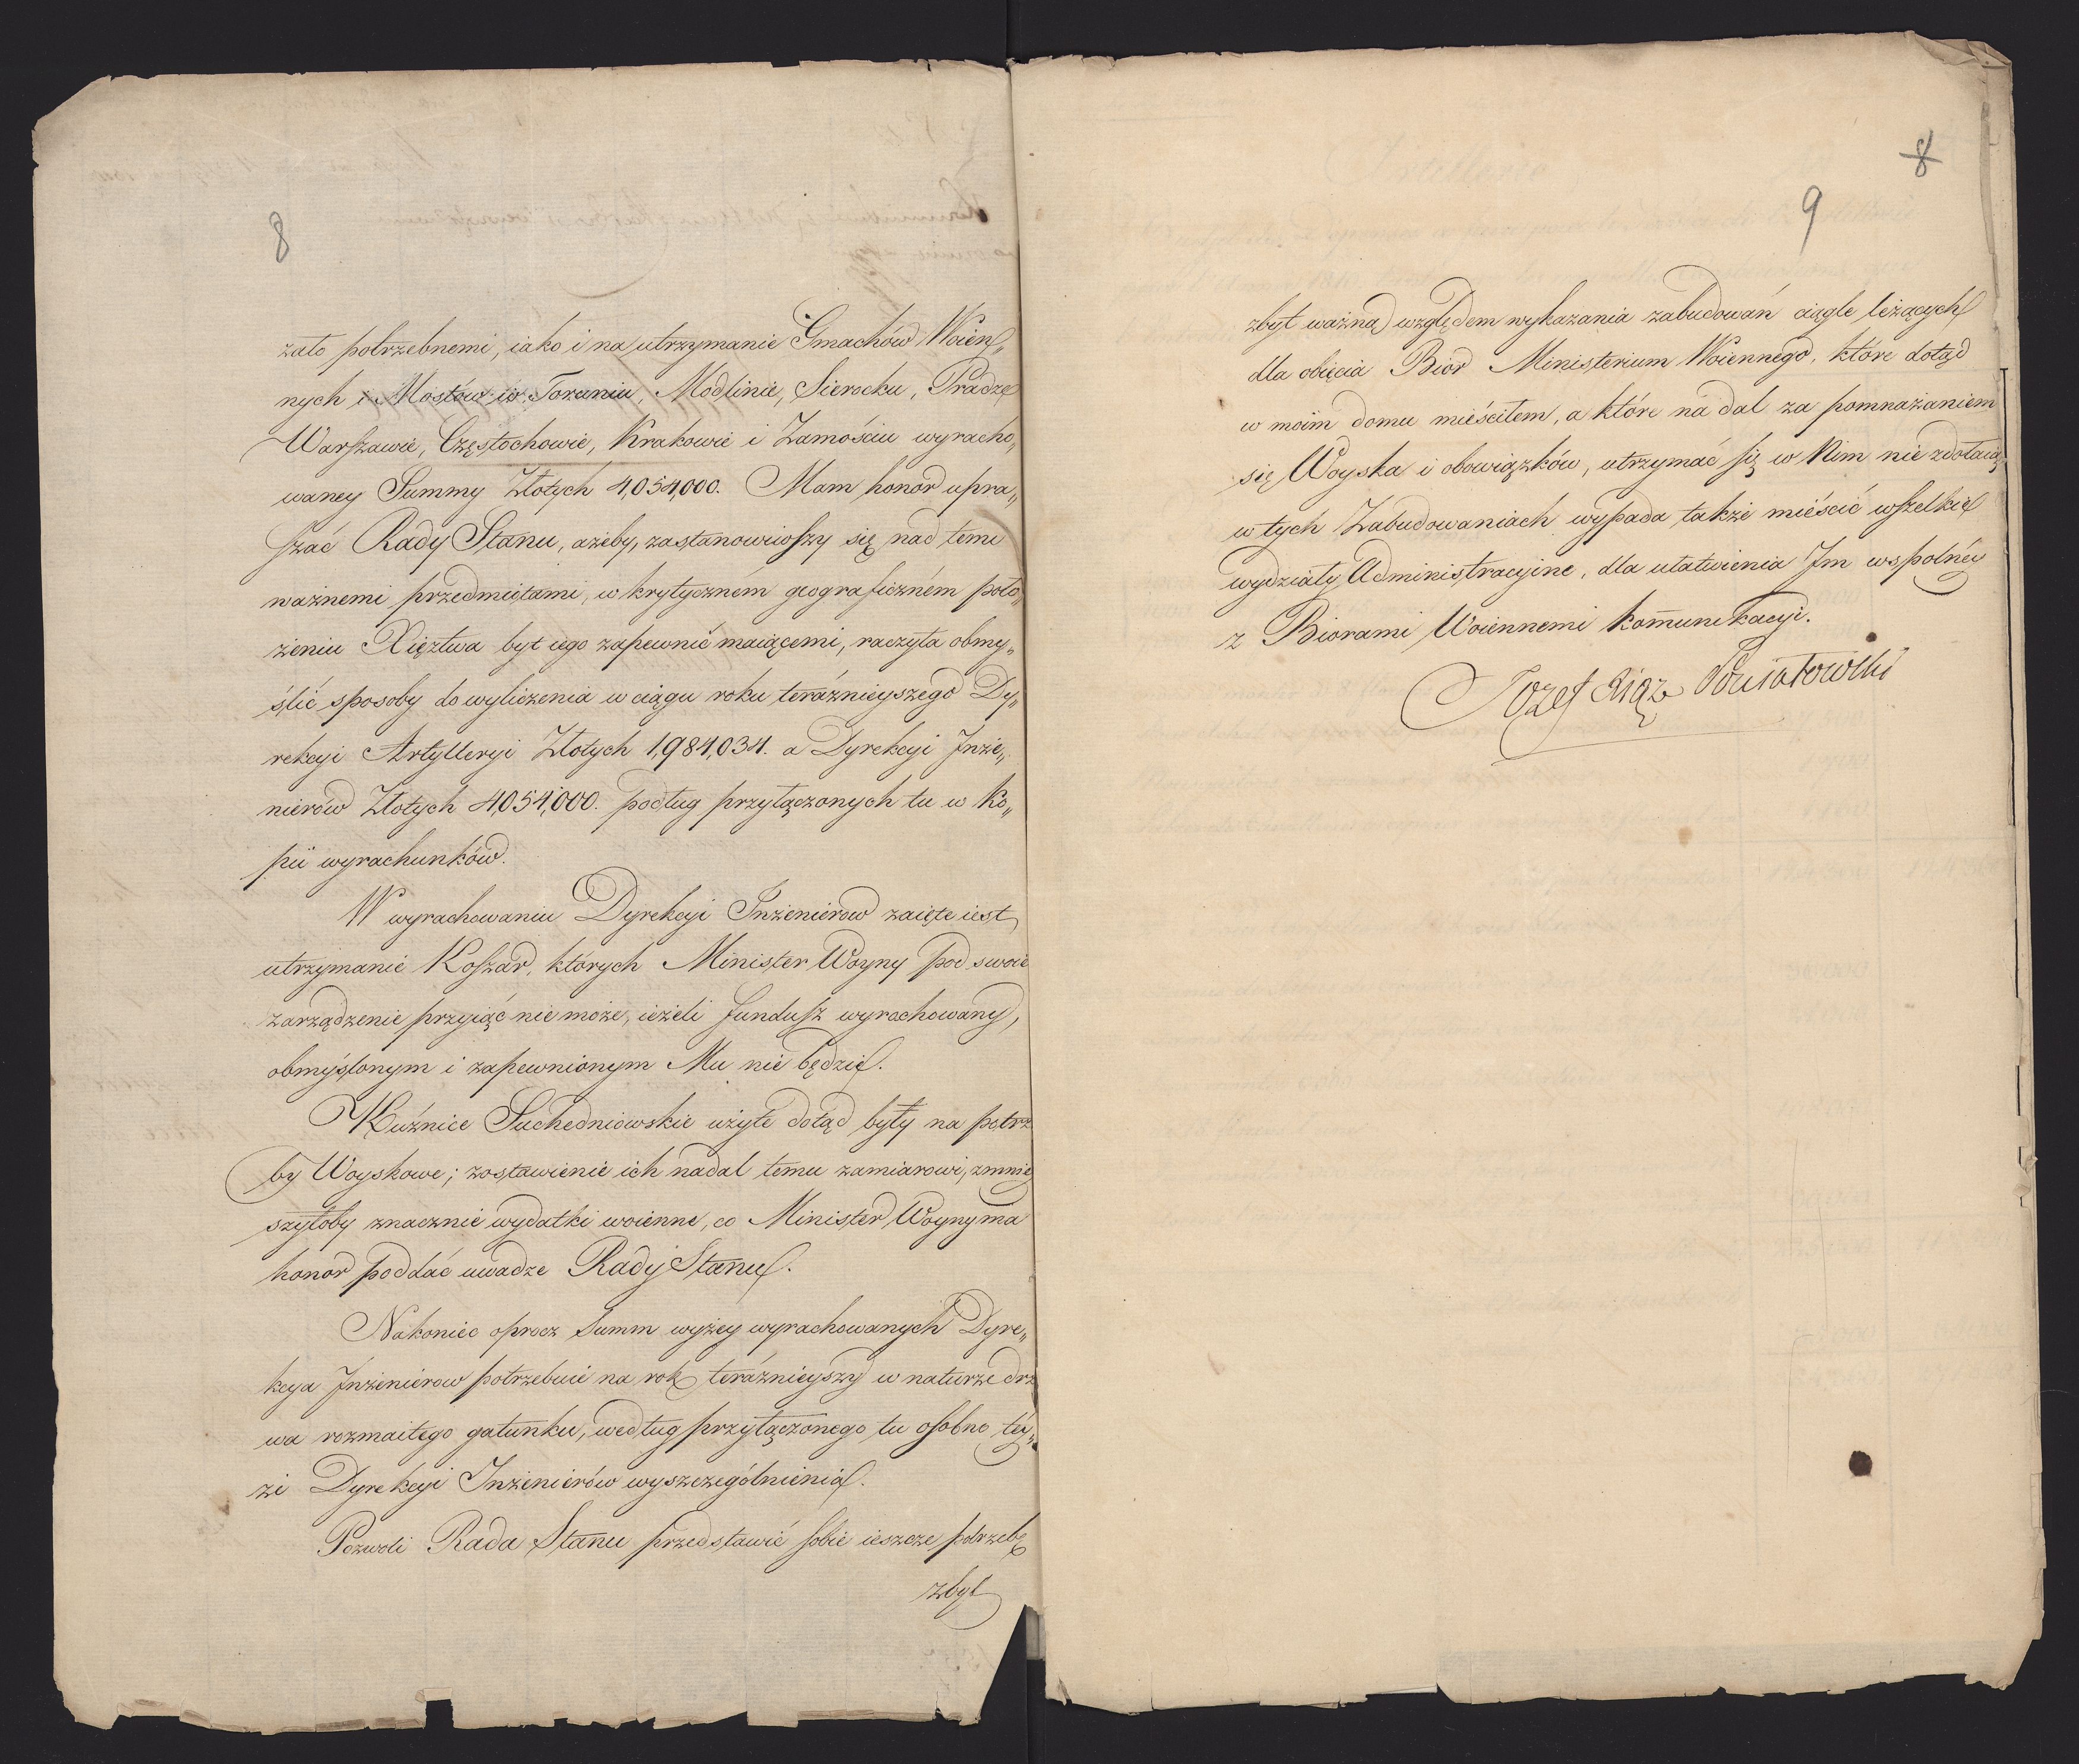 8
zało potrzebnemi, iako i na utrzymanie Gmachów Woien„
nych i Mostów w Toruniu, Modlinie, Sierocku, Pradze
Warszawie, Częstochowie, Krakowie i Zamościu wyracho„
waney Summy Złotych 4,054,000. Mam honor upra„
szać Rady Stanu, ażeby, zastanowiwszy się nad temi
ważnemi przedmiotami, w krytyczném geograficzném poło„
żeniu Xięztwa byt iego zapewnić maiącemi, raczyła obmy„
ślić sposoby do wyliczenia w ciągu roku teráznieyszego Dy„
rekcyi Artylleryi Złotych 1,984,034. a Dyrekcyi Inże„
nierów Złotych 4,054,000. podług przyłączonych tu w Ko„
pii wyrachunków.
W wyrachowaniu Dyrekcyi Inżenierow zaięte iest
utrzymanie Koszar, których Minister Woyny pod swoie
zarządzenie przyiąć nie może, ieżeli fundusz wyrachowany,
obmyślonym i zapewnionym Mu nie będzie.
Kuźnice Suchedniowskie użyte dotąd były na potrze
by Woyskowe; zostawienie ich nadal temu zamiarowi, zmniey
szyłoby znacznie wydatki woienne, co Minister Woyny ma
honor poddać uwadze Rady Stanu.
Nakoniec oprocz Summ wyżey wyrachowanych Dyre„
kcya Inżenierow potrzebuie na rok teráznieyszy w naturze drze
wa rozmaitego gatunku, według przyłączonego tu osobno téy„
że Dyrekcyi Inżenierów wyszczególnienia.
Pozwoli Rada Stanu przedstawić sobie ieszcze potrzebę
zbyt
8
9
zbyt ważną względem wykazania zabudowań ciągle leżących
dla obięcia Biór Ministerium Woiennego, które dotąd
w moim domu mieściłem, a które nadal za pomnażaniem
się Woyska i obowiązków, utrzymać się w Nim nie zdołaią
w tych Zabudowaniach wypada także mieścić wszelkie
wydziały Administracyine, dla ułatwienia Im wspólnéy
z Biorami Woiennemi kom̃unikacyi.
Józef Xiąże Poniatowski